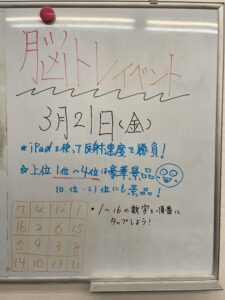 脳トレイベント
3月21日(金)
★iPadを使って反射速度を勝負!
☆上位1位～4位は豪華景品
10位・21位にも景品!
・1～16の数字を順番に
タップしよう!
7 4 12 1
16 2 6 15
5 9 3 8
14 10 13 11